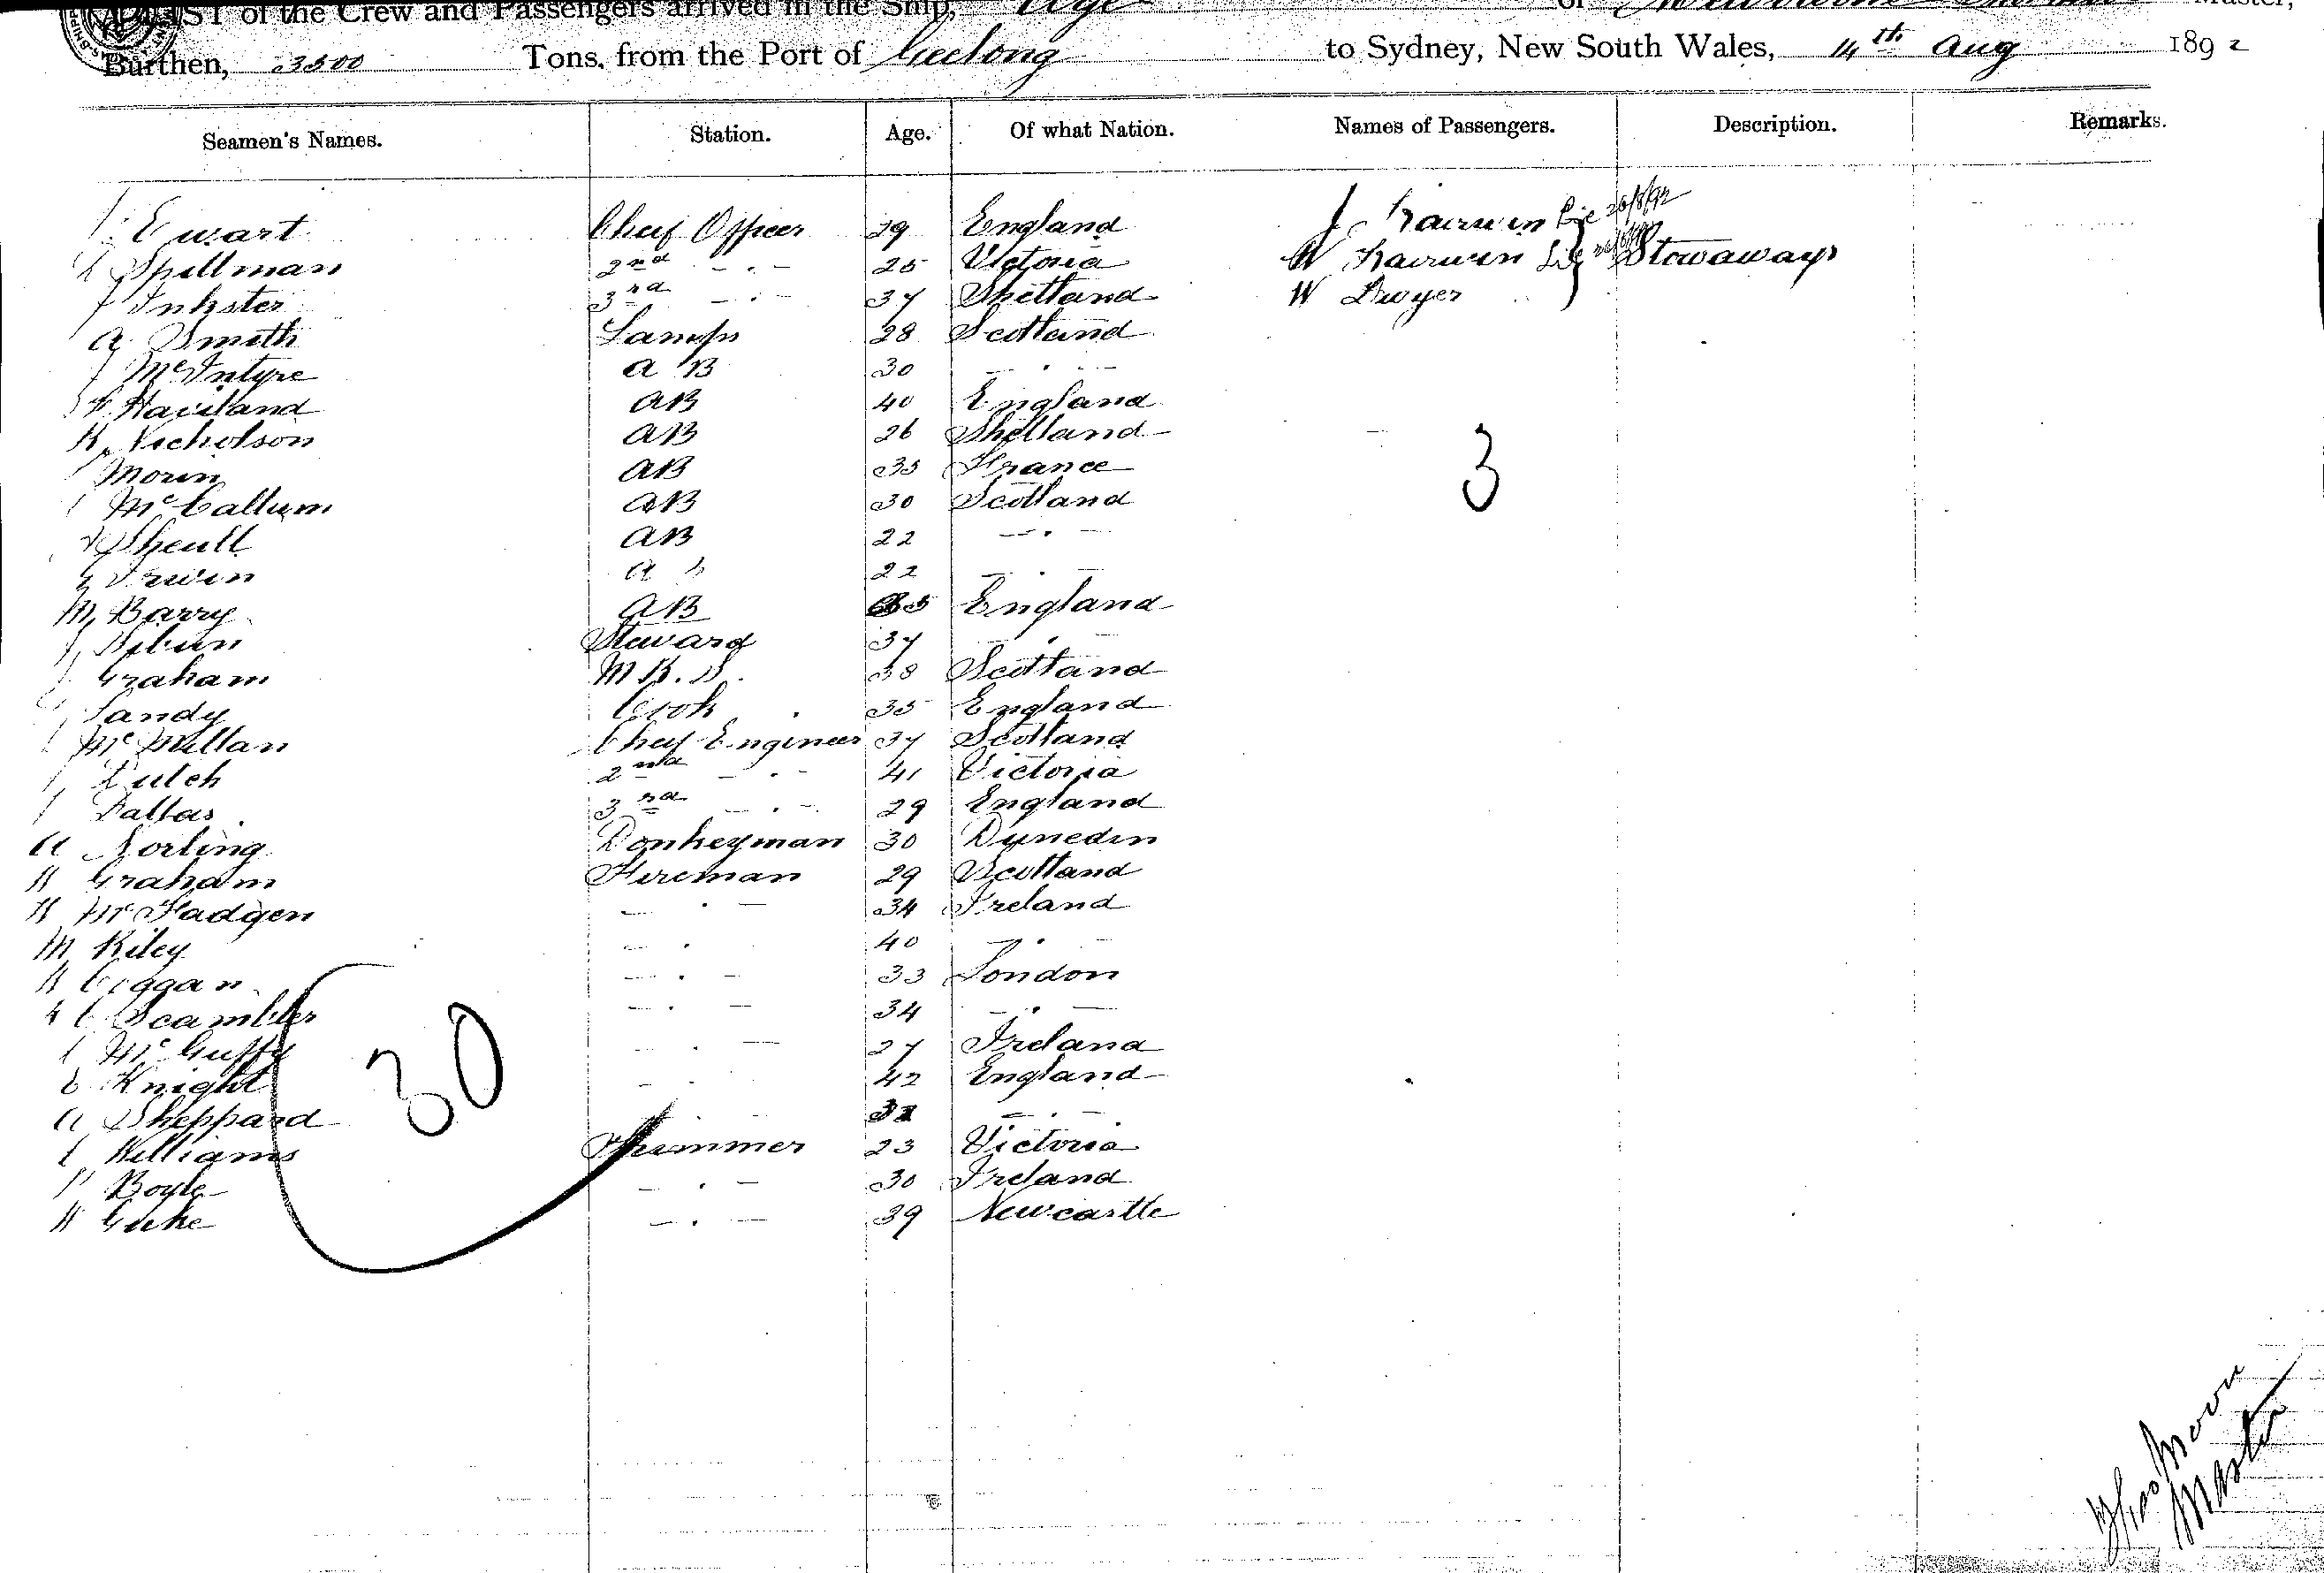 LIST of the Crew and Passengers arrived in the Ship, of Melbourne Master,
Burthen, 3500 Tons, from the Port of Geelong to Sydney, New South Wales, 14th Aug 1892
Seamen's Names. Station. Age. Of what Nation. Names of Passengers. Description. Remarks.
Ewart Cheif Officer 29 England J 26/8/92
Spillman 2nd - . - 25 Victoria W Stowaways
J Inkster 3rd - . - 37 Shetland W Dwyer
A Smith Lamps 28 Scotland
J McIntyre A B 30 - . -
Haviland AB 40 England
Nicholson AB 26 Shetland
Morin AB 35 France 3
McCallum AB 30 Scotland
AB 22 - . -
Irwin A B 22 - . -
M Barry AB 35 England
Steward 37 - . -
Graham M R. S. 38 Scotland
Sandy Cook 35 England
McMillan Cheif Engineer 37 Scotland
2nd - . - 41 Victoria
Dallas 3rd - . - 29 England
A Norling Donkeyman 30 Dunedin
Graham Fireman 29 Scotland
McFadgen - . - 34 Ireland
M Riley - . 40 - . -
- . - 33 London
C Scambler - . - 34 - . -
McGuffy - . - 27 Ireland
Knight - . - 42 England
A Sheppard - . - - . -
Williams Trimmer 23 Victoria
Boyle - . - 30 Ireland
- . - 39 Newcastle
30
Master